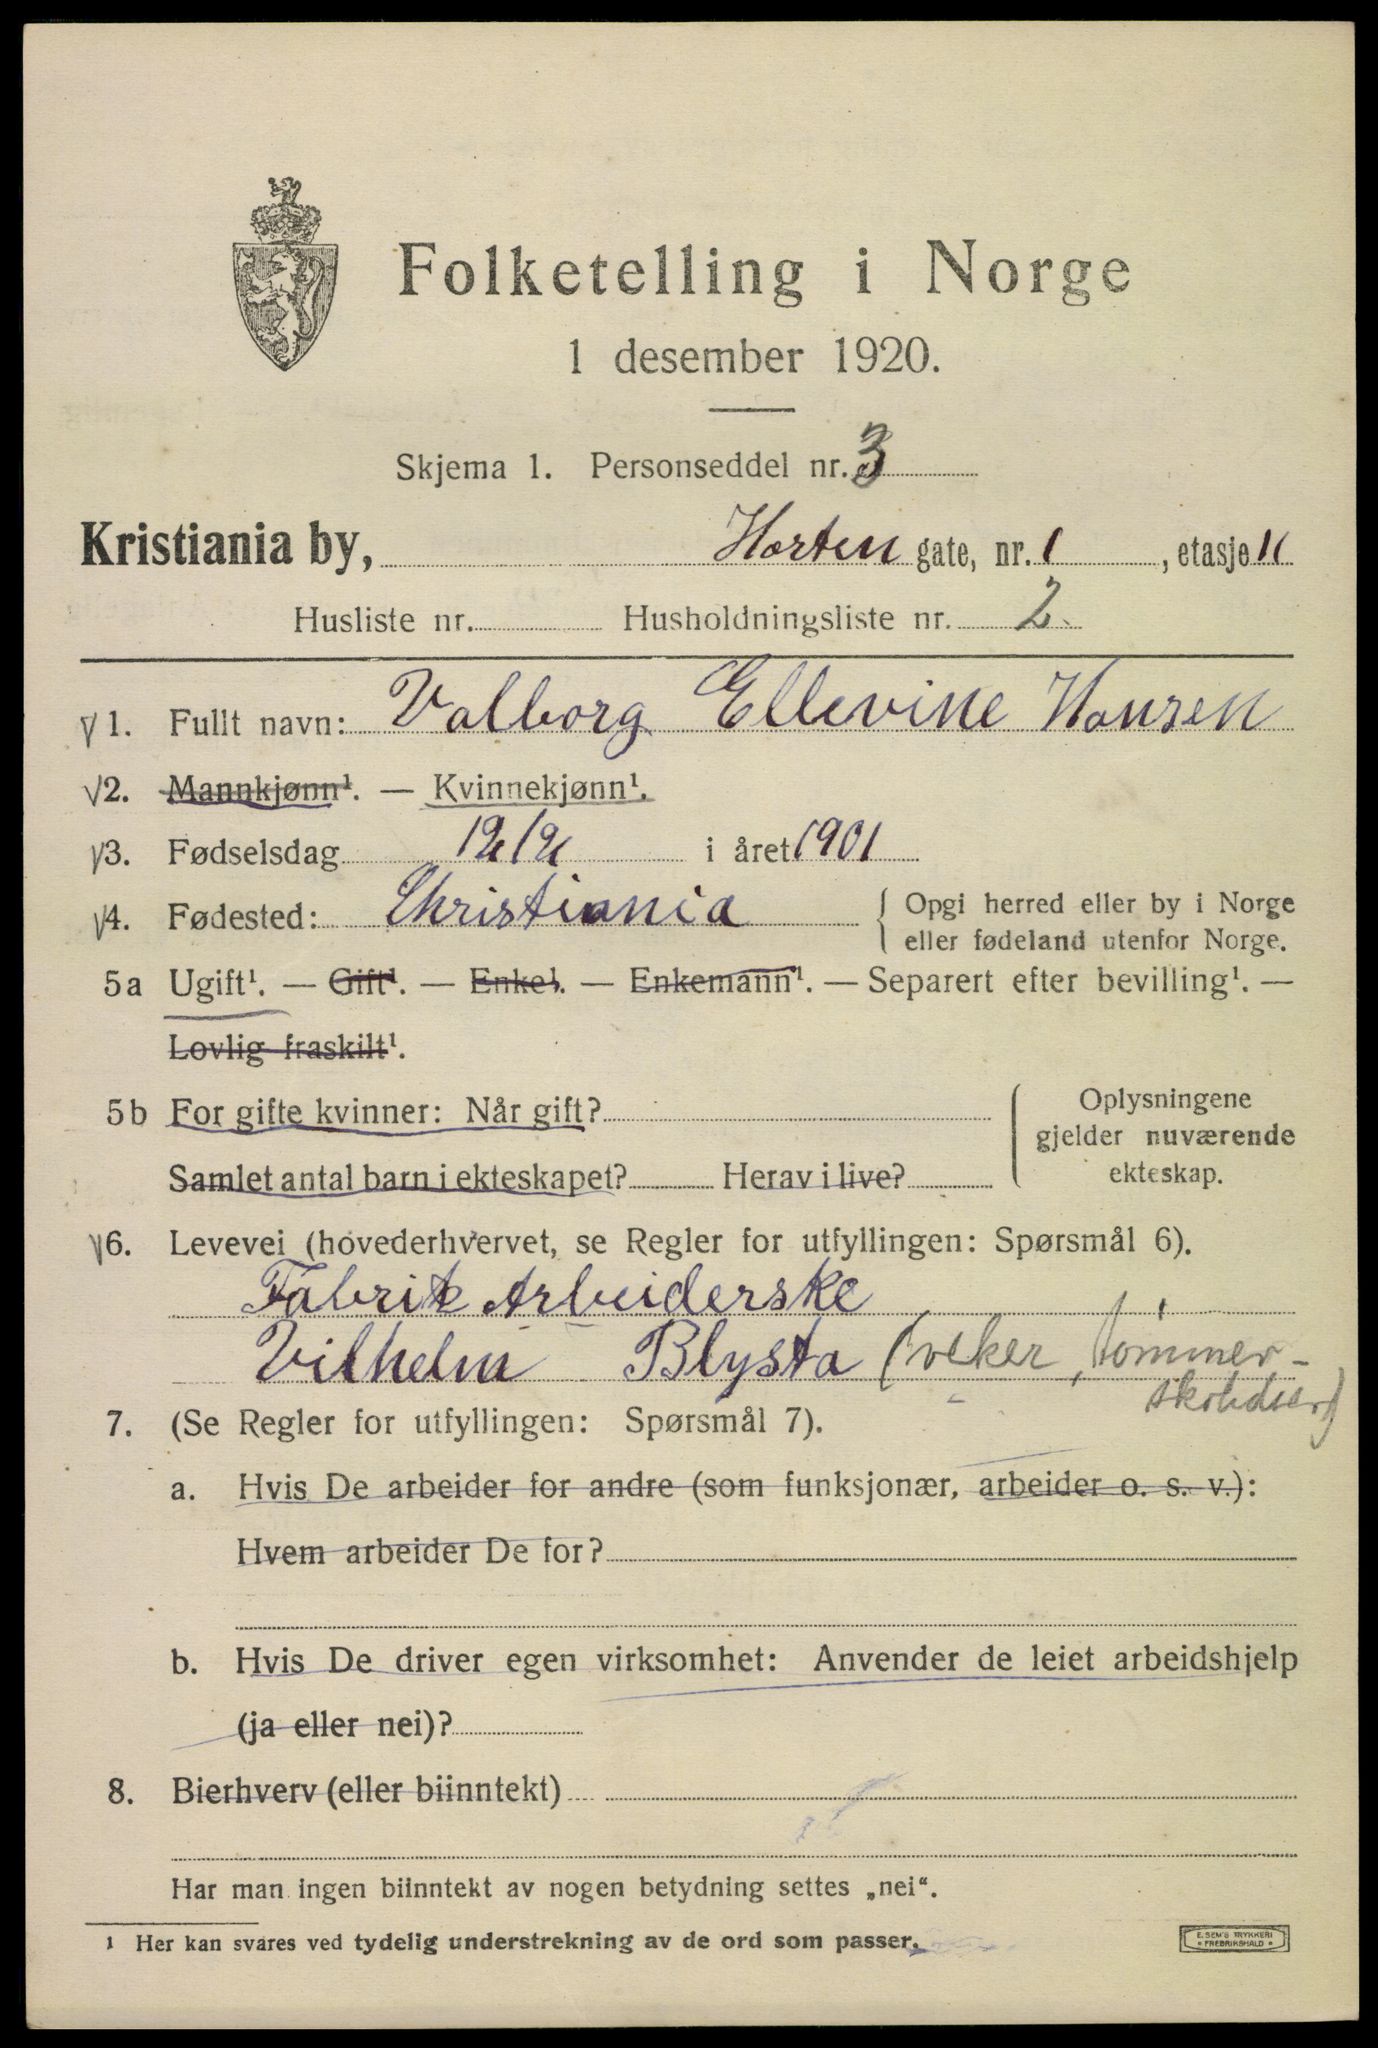 Folketelling i Norge
1 desember 1920.
Skjema 1. Personseddel nr. 3
Kristiania by, Horten gate, nr. 1, etasje II
Husliste nr. Husholdningsliste nr. 2
1. Fullt navn: Valborg Ellevine Hansen
2. Mannkjønn¹. — Kvinnekjønn¹.
3. Fødselsdag i året 1901
4. Fødested: Christiania { Opgi herred eller by i Norge
eller fødeland utenfor Norge.
5a Ugift¹. — Gift¹. — Enke¹. — Enkemann¹. — Separert efter bevilling¹. —
Lovlig fraskilt¹.
5b For gifte kvinner: Når gift? { Oplysningene
gjelder nuværende
Samlet antal barn i ekteskapet? Herav i live? ekteskap.
6. Levevei (hovederhvervet, se Regler for utfyllingen: Spørsmål 6).
Fabrik Arbeiderske
Vilhelm Blysta
7. (Se Regler for utfyllingen: Spørsmål 7).
a. Hvis De arbeider for andre (som funksjonær, arbeider o. s. v.):
Hvem arbeider De for?
b. Hvis De driver egen virksomhet: Anvender de leiet arbeidshjelp
(ja eller nei)?
8. Bierhverv (eller biinntekt)
Har man ingen biinntekt av nogen betydning settes „nei“.
¹ Her kan svares ved tydelig understrekning av de ord som passer.
E. SEM'S TRYKKERI
FREDRIKSHALD